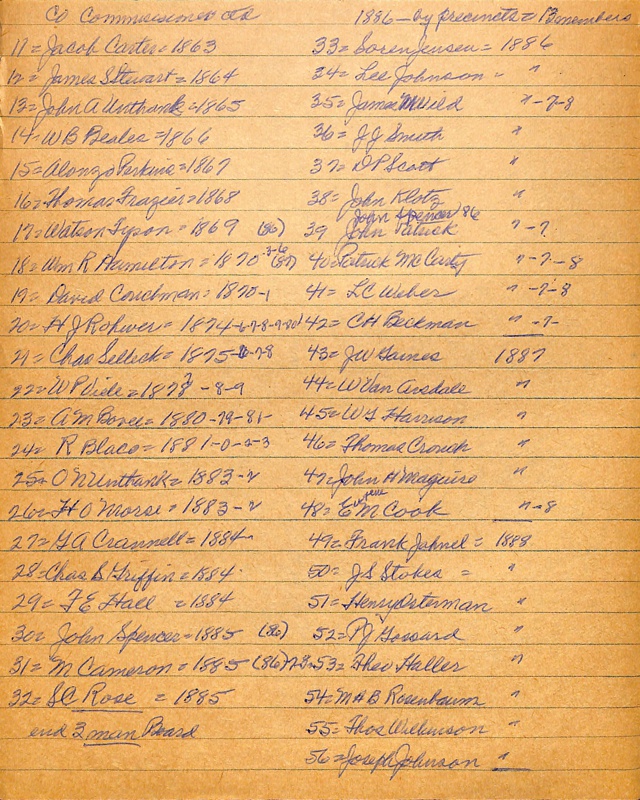 Co Commissioner
11= Jacob Carter = 1863
12= James Stewart = 1864
13= John A Unthank = 1865
14= W B Beales = 1866
15= Alonzo Perkins = 1867
16= Thomas Frazier = 1868
17= Watson Tyson = 1869 (86)
18= Wm R Hamilton = 1870-3-6 (87)
19= David Couchman = 1870-1
20= H J Rohwer = 1874-6-7-8-9-80
21= Chas Selleck = 1875-6-7-8
22= W P Viele = 1878 -8-9
23= A M Bovee = 1880-79-81-
24= R Blaco = 1881-0-2-3
25= O N Unthank = 1883-2
26= H O Morse = 1883-2
27= G A Crannell = 1884
28= Chas B Griffin = 1884
29= F E Hall = 1884
30= John Spencer = 1885 (86)
31= M Cameron = 1885 (86)
32= S C Rose = 1885
end 3 man Board
1886 - by precincts = 13 members
33= Soren Jensen = 1886
34= Lee Johnson = "
35= James M Wild " -7-8
36= J J Smith "
37= D P Scott "
38= John Klotz "
John Spencer 86
39 John Patrick " -7
40= Patrick McCarty " -7-8
41= L C Weber " -7-8
42= C H Beckman " -7-
43= J W Gaines 1887
44= W Van Arsdale "
45= W G Harrison "
46= Thomas Crouch "
47= John H Maguire "
48= E M Cook " -8
49= Frank Jahnel = 1888
50= J S Stokes = "
51= Henry Osterman "
52= Gossard "
53= Theo Haller "
54= M H B Rosenbaum "
55= Thos Wilkinson "
56= Joseph Johnson "